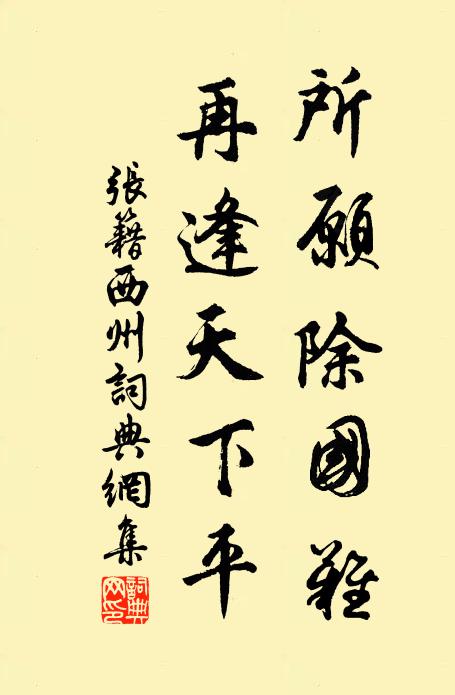 所願除國難
再逢天下平
張籍西州詞典網集
詞典网印